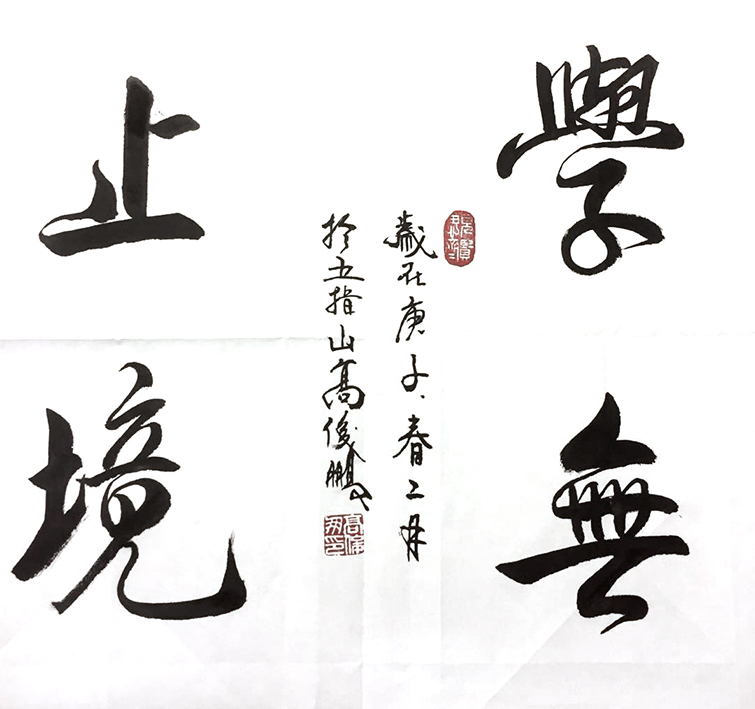 學無
止境
歲在庚子、春二月
於五指山高俊鵬